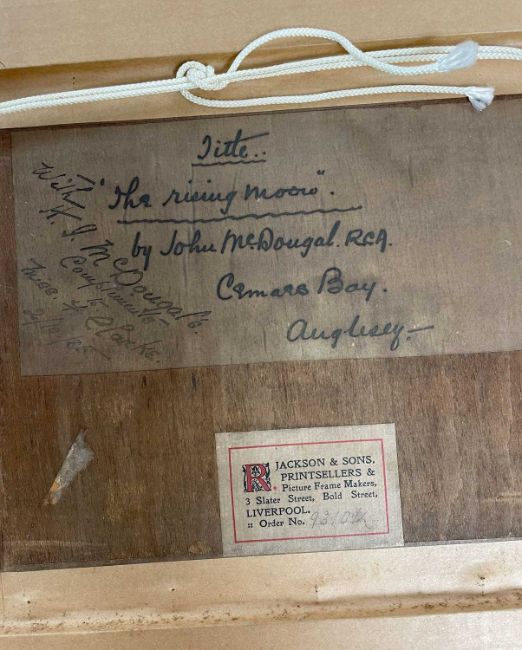 Title..
"The rising moon".
by John McDougal. RCA.
Cemaes Bay.
Anglesey
With
McDougal's
Compliments
to
Miss Clarke.
R. JACKSON & SONS,
PRINTSELLERS &
Picture Frame Makers,
3 Slater Street, Bold Street,
LIVERPOOL.
:: Order No.